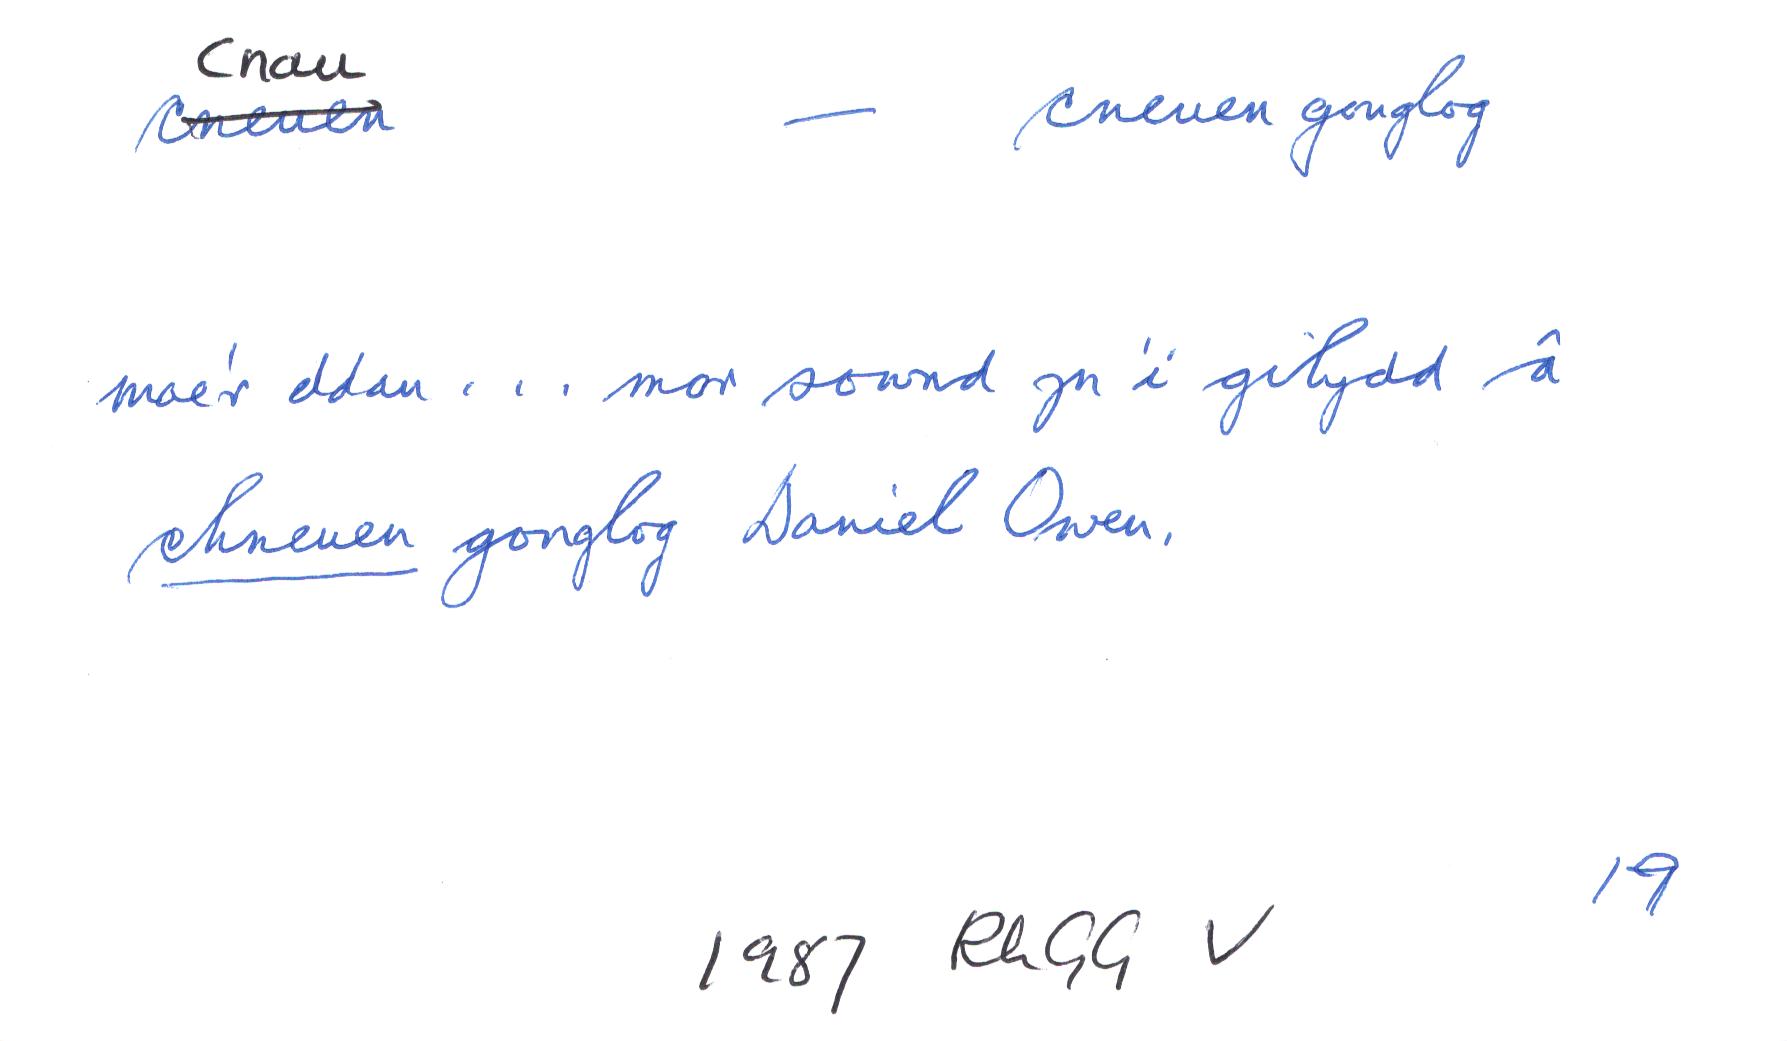 Cnau
cneuen — cneuen gonglog
mae'r ddau . . . mor sownd yn 'i gilydd â
chneuen gonglog Daniel Owen.
19
1987 RhGG V